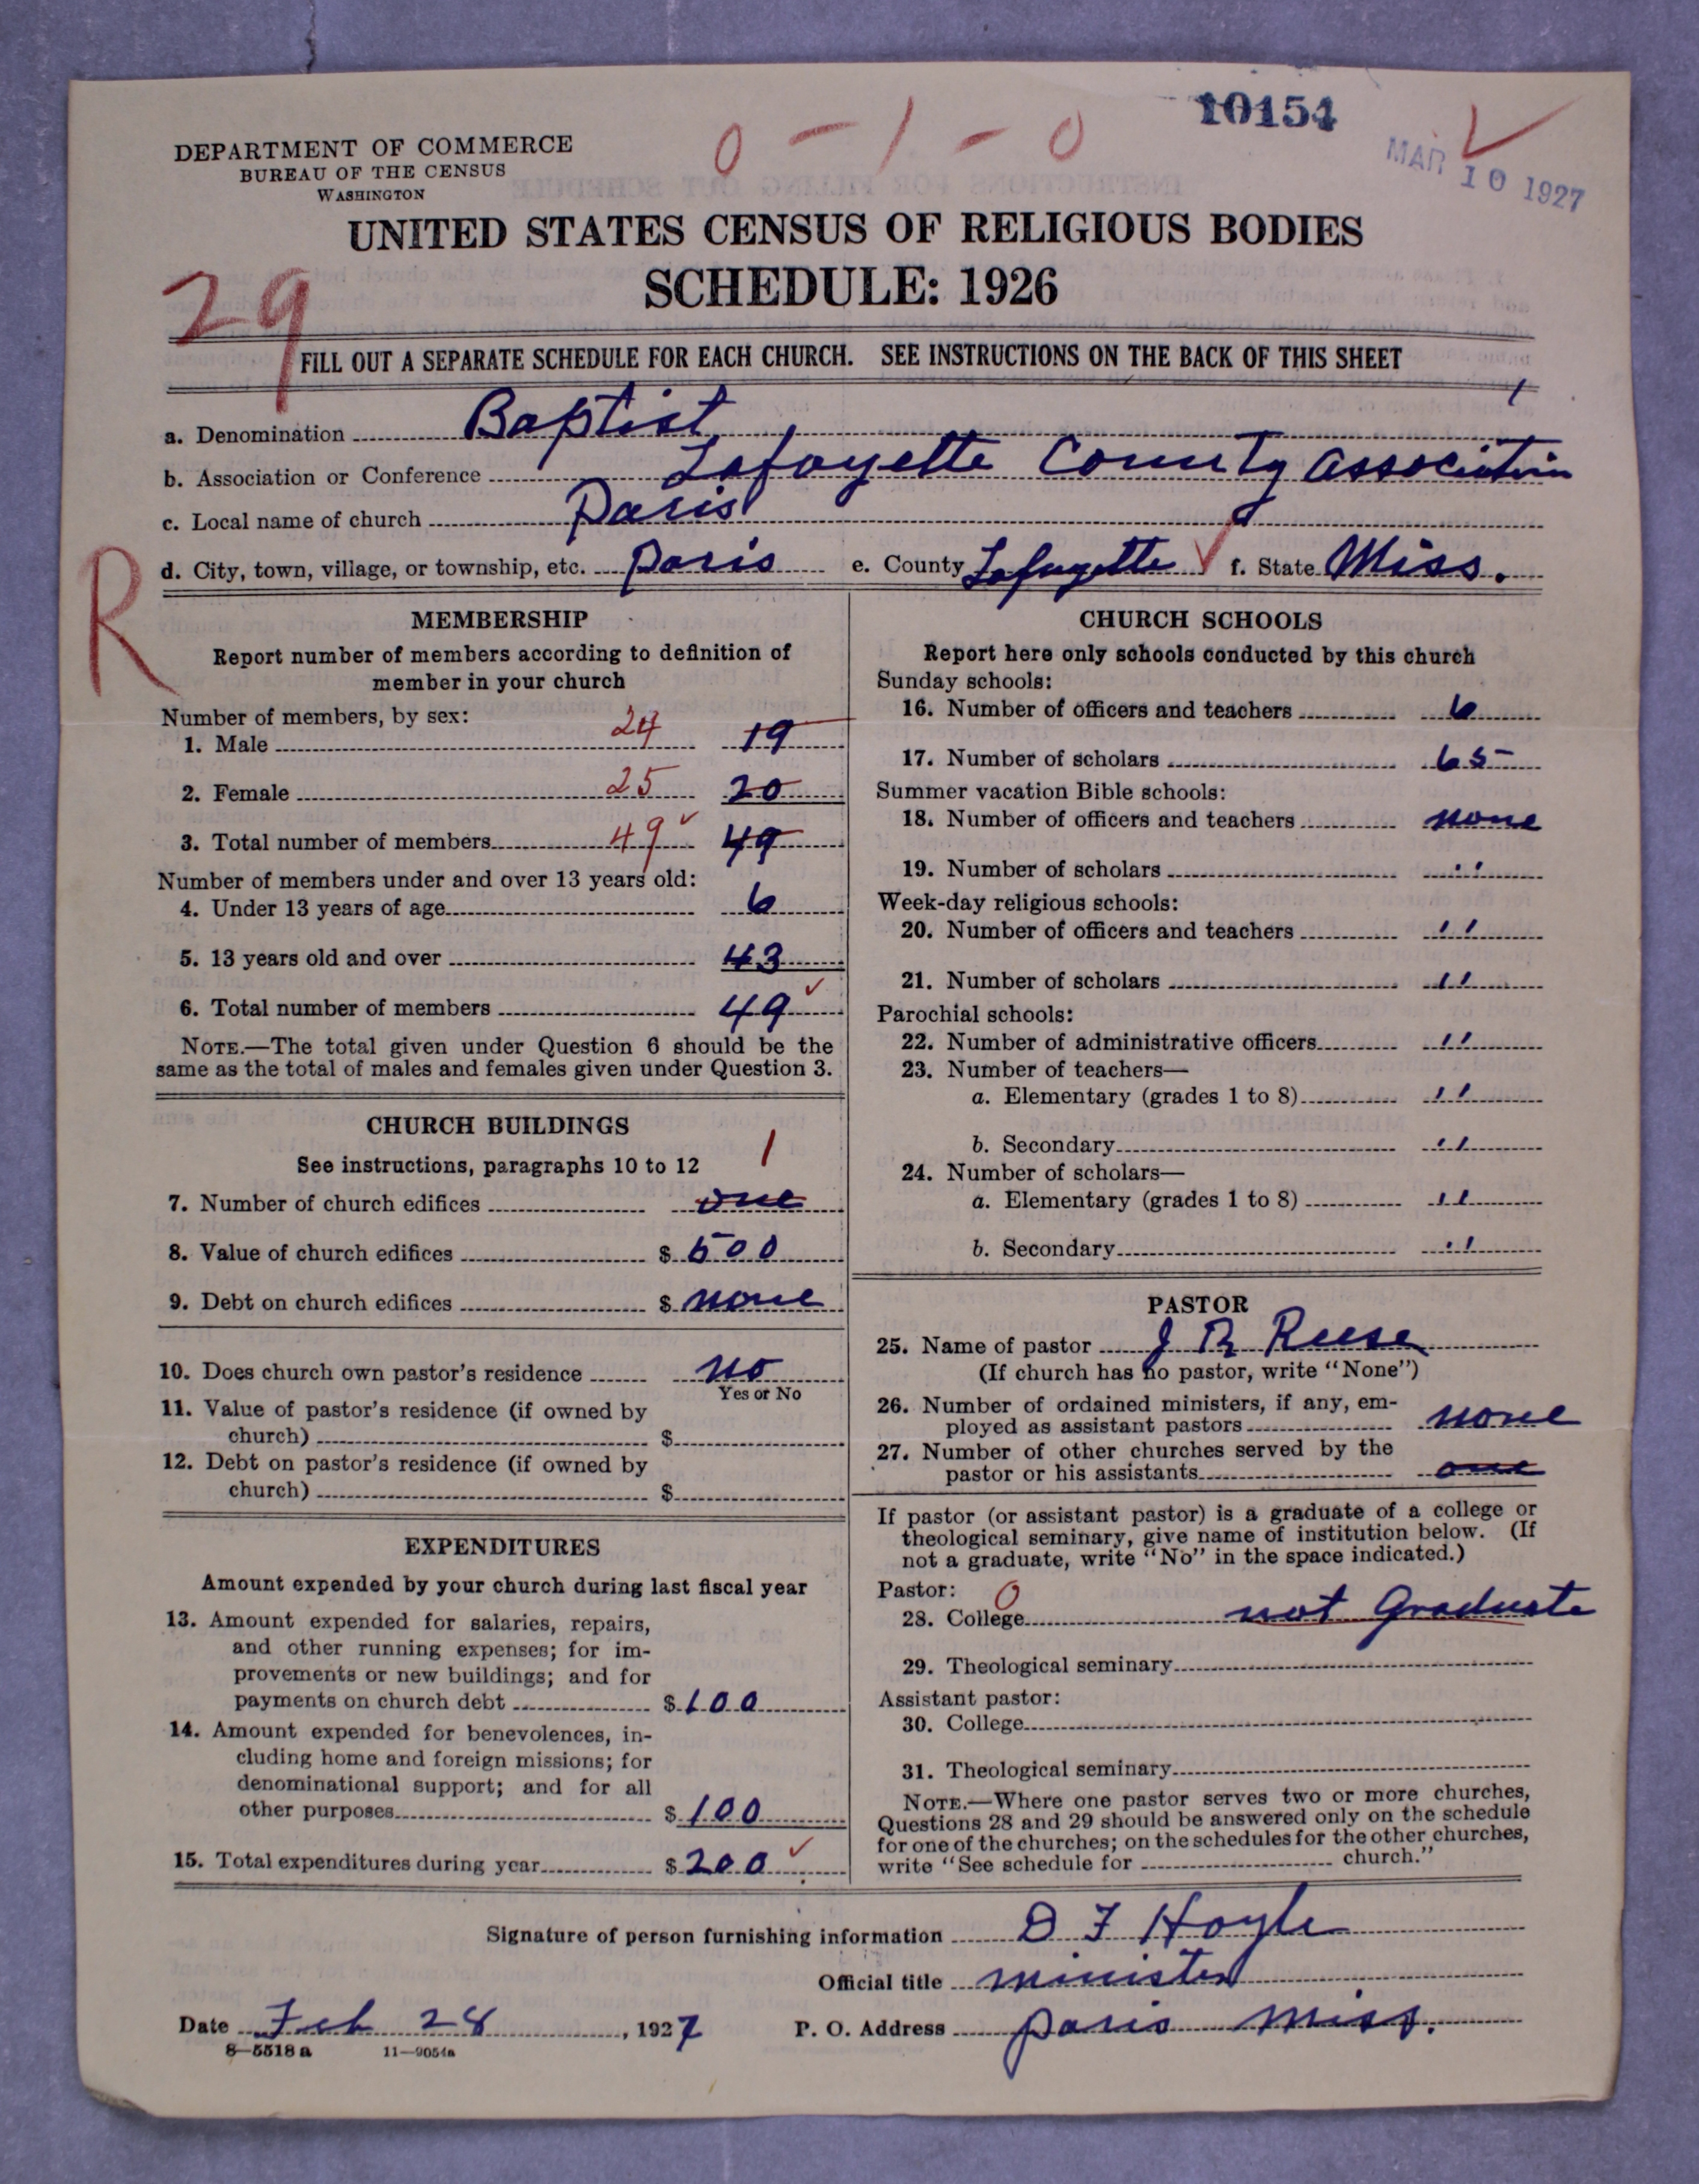 10154
0 - 1 - 0
MAR 10 1927
DEPARTMENT OF COMMERCE
BUREAU OF THE CENSUS
WASHINGTON
UNITED STATES CENSUS OF RELIGIOUS BODIES
SCHEDULE: 1926
29
FILL OUT A SEPARATE SCHEDULE FOR EACH CHURCH. SEE INSTRUCTIONS ON THE BACK OF THIS SHEET
a. Denomination Baptist
b. Association or Conference Lafayette County Association
c. Local name of church Paris
d. City, town, village, or township, etc. Paris e. County Lafayette f. State Miss.
R
MEMBERSHIP
Report number of members according to definition of
member in your church
Number of members, by sex:
1. Male 24 19
2. Female 25 20
3. Total number of members 49 49
Number of members under and over 13 years old:
4. Under 13 years of age 6
5. 13 years old and over 43
6. Total number of members 49
NOTE.—The total given under Question 6 should be the
same as the total of males and females given under Question 3.
CHURCH BUILDINGS
See instructions, paragraphs 10 to 12
1
7. Number of church edifices one
8. Value of church edifices $ 500
9. Debt on church edifices $ none
10. Does church own pastor's residence no
Yes or No
11. Value of pastor's residence (if owned by
church) $
12. Debt on pastor's residence (if owned by
church) $
EXPENDITURES
Amount expended by your church during last fiscal year
13. Amount expended for salaries, repairs,
and other running expenses; for im-
provements or new buildings; and for
payments on church debt $ 100
14. Amount expended for benevolences, in-
cluding home and foreign missions; for
denominational support; and for all
other purposes $ 100
15. Total expenditures during year $ 200
CHURCH SCHOOLS
Report here only schools conducted by this church
Sunday schools:
16. Number of officers and teachers 6
17. Number of scholars 65
Summer vacation Bible schools:
18. Number of officers and teachers none
19. Number of scholars "
Week-day religious schools:
20. Number of officers and teachers "
21. Number of scholars "
Parochial schools:
22. Number of administrative officers "
23. Number of teachers—
a. Elementary (grades 1 to 8) "
b. Secondary "
24. Number of scholars—
a. Elementary (grades 1 to 8) "
b. Secondary "
PASTOR
25. Name of pastor J R Reese
(If church has no pastor, write "None")
26. Number of ordained ministers, if any, em-
ployed as assistant pastors none
27. Number of other churches served by the
pastor or his assistants one
If pastor (or assistant pastor) is a graduate of a college or
theological seminary, give name of institution below. (If
not a graduate, write "No" in the space indicated.)
Pastor: 0
28. College not Graduate
29. Theological seminary
Assistant pastor:
30. College
31. Theological seminary
NOTE.—Where one pastor serves two or more churches,
Questions 28 and 29 should be answered only on the schedule
for one of the churches; on the schedules for the other churches,
write "See schedule for church."
Signature of person furnishing information D F Hoyle
Official title minister
Date Feb 28, 1927 P. O. Address Paris Miss.
8—5518 a 11—9054a